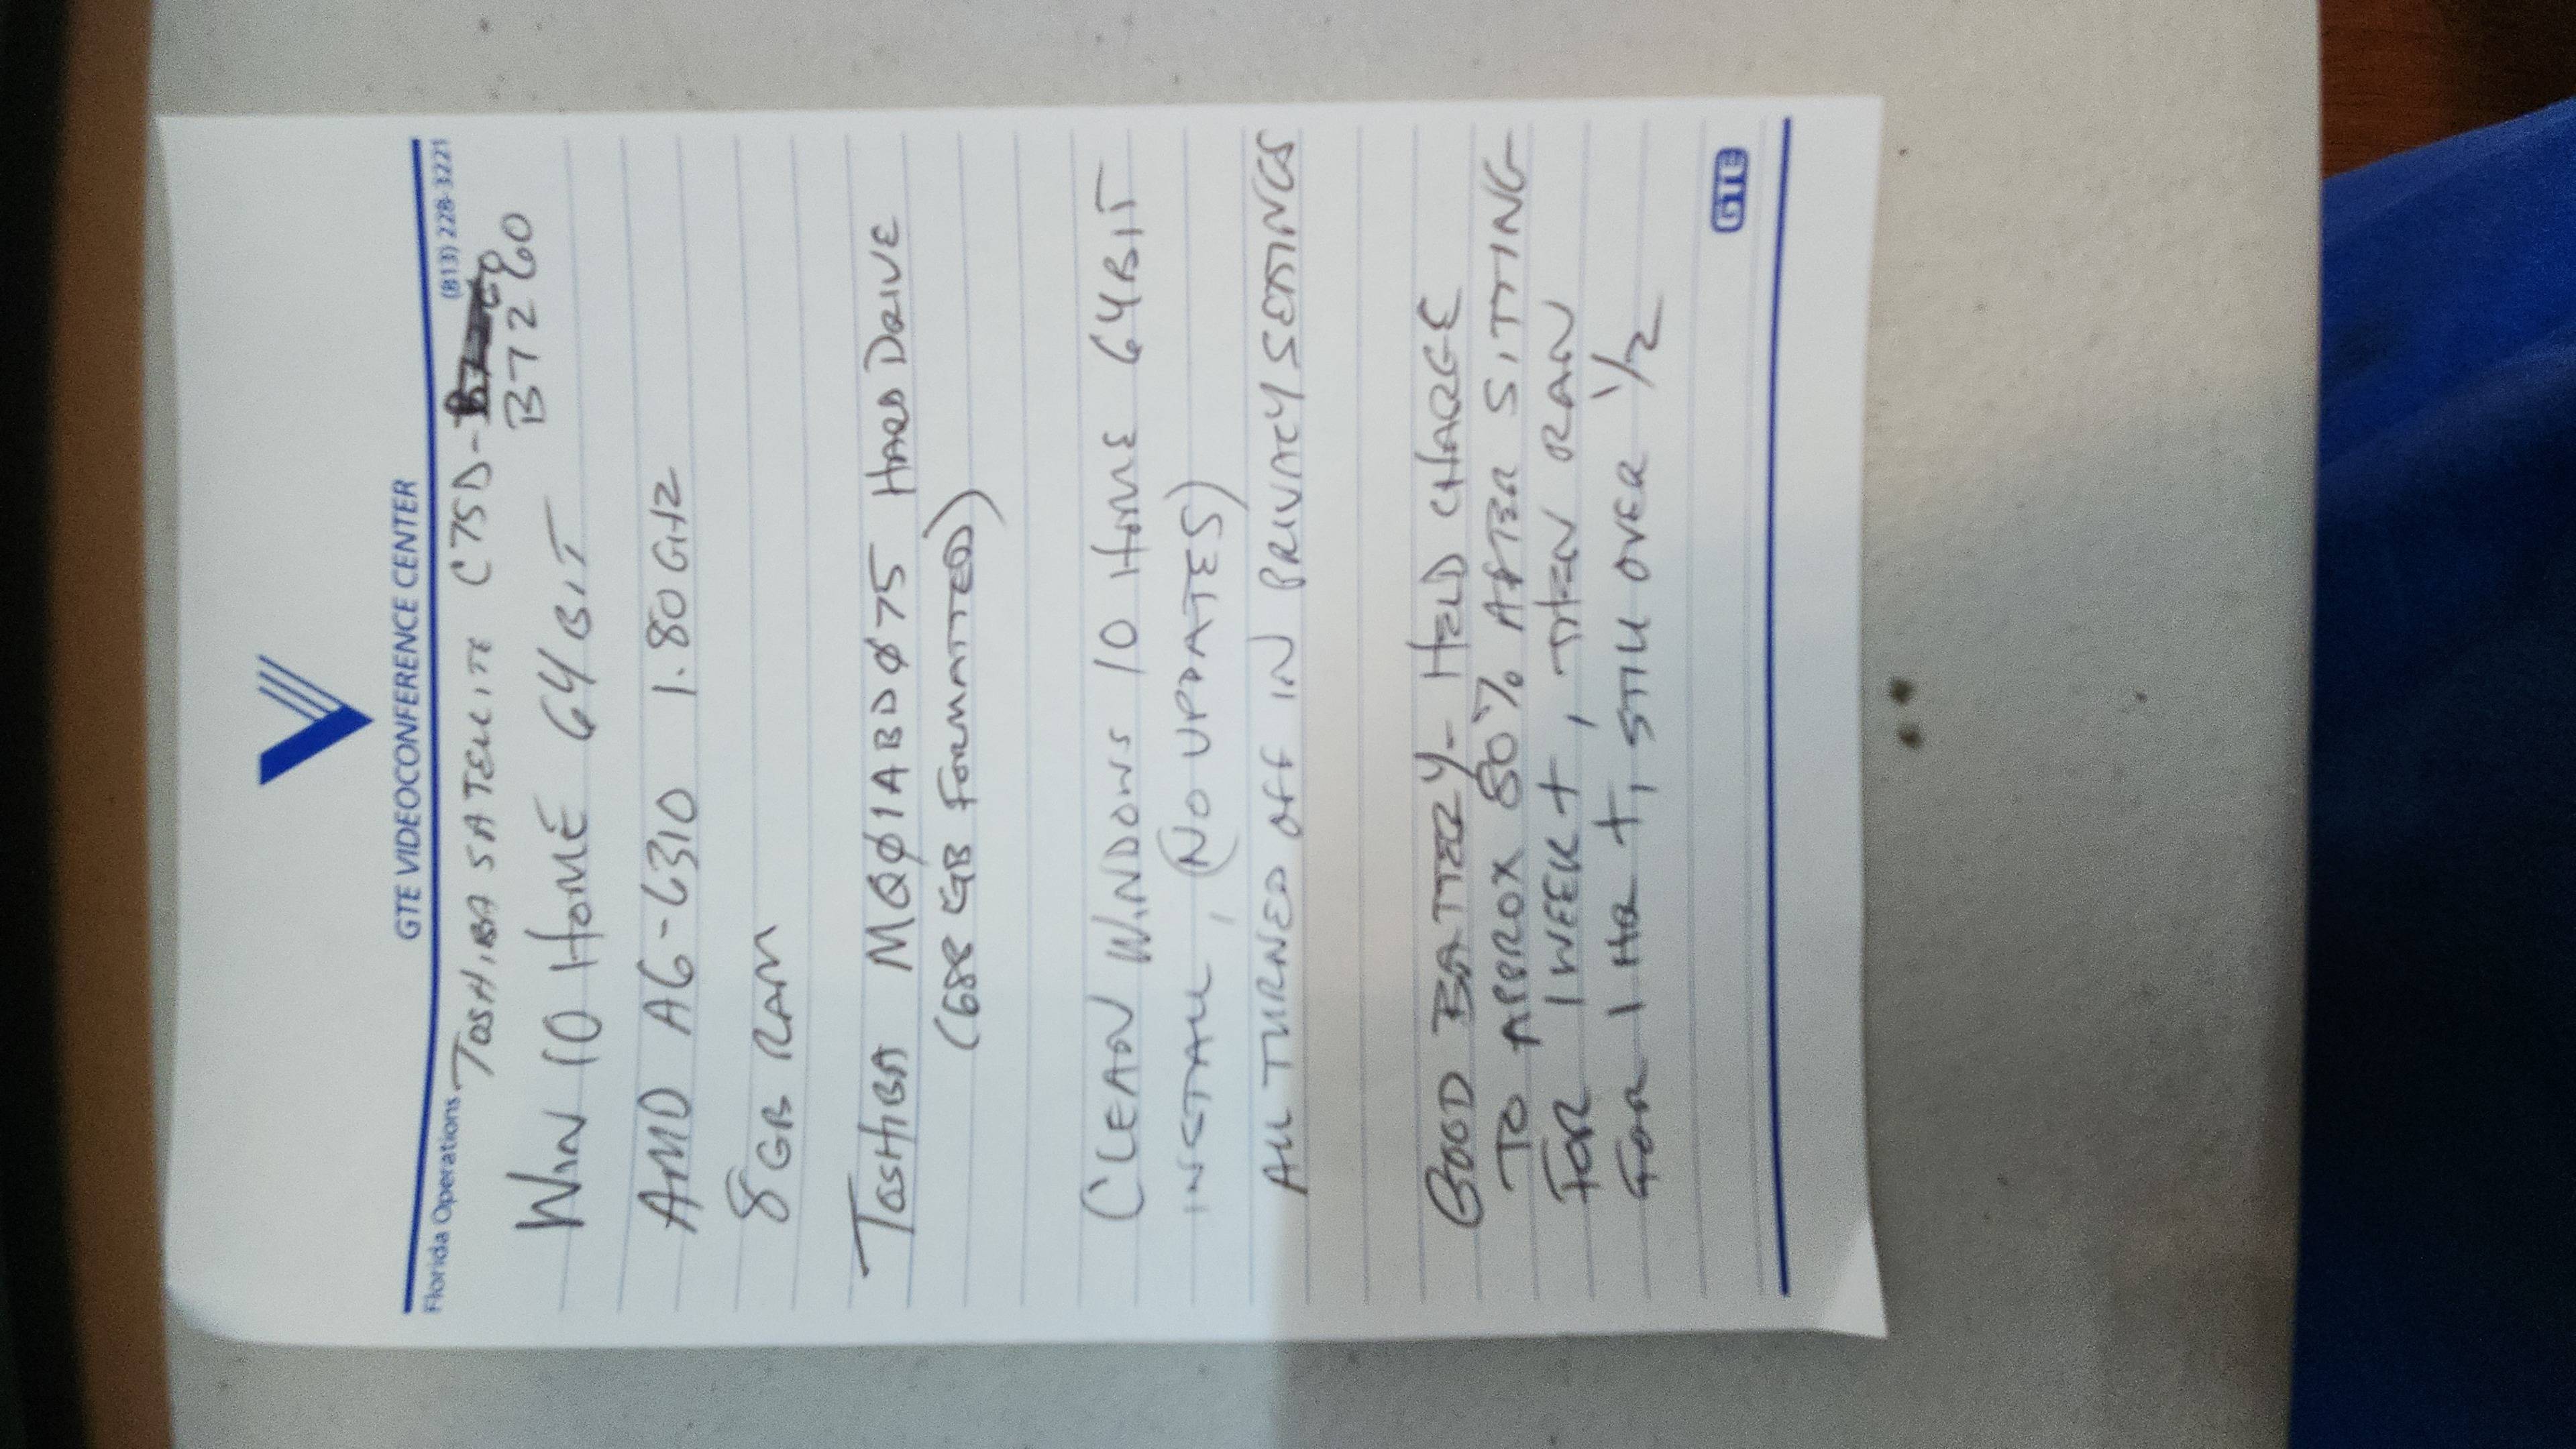 GTE VIDEOCONFERENCE CENTER
Florida Operations (813) 228-3221
TOSHIBA SATELLITE C75D-
B7260
WIN 10 HOME 64 BIT
AMD A6-6310 1.80 GHz
8 GB RAM
TOSHIBA MQØ1ABDØ75 HARD DRIVE
(688 GB FORMATTED)
CLEAN WINDOWS 10 HOME 64 BIT
INSTALL, (NO UPDATES)
ALL TURNED OFF IN PRIVACY SETTINGS
GOOD BATTERY - HELD CHARGE
TO APPROX 80% AFTER SITTING
FOR 1 WEEK +, THEN RAN
FOR 1 HR +, STILL OVER 1/2
GTE